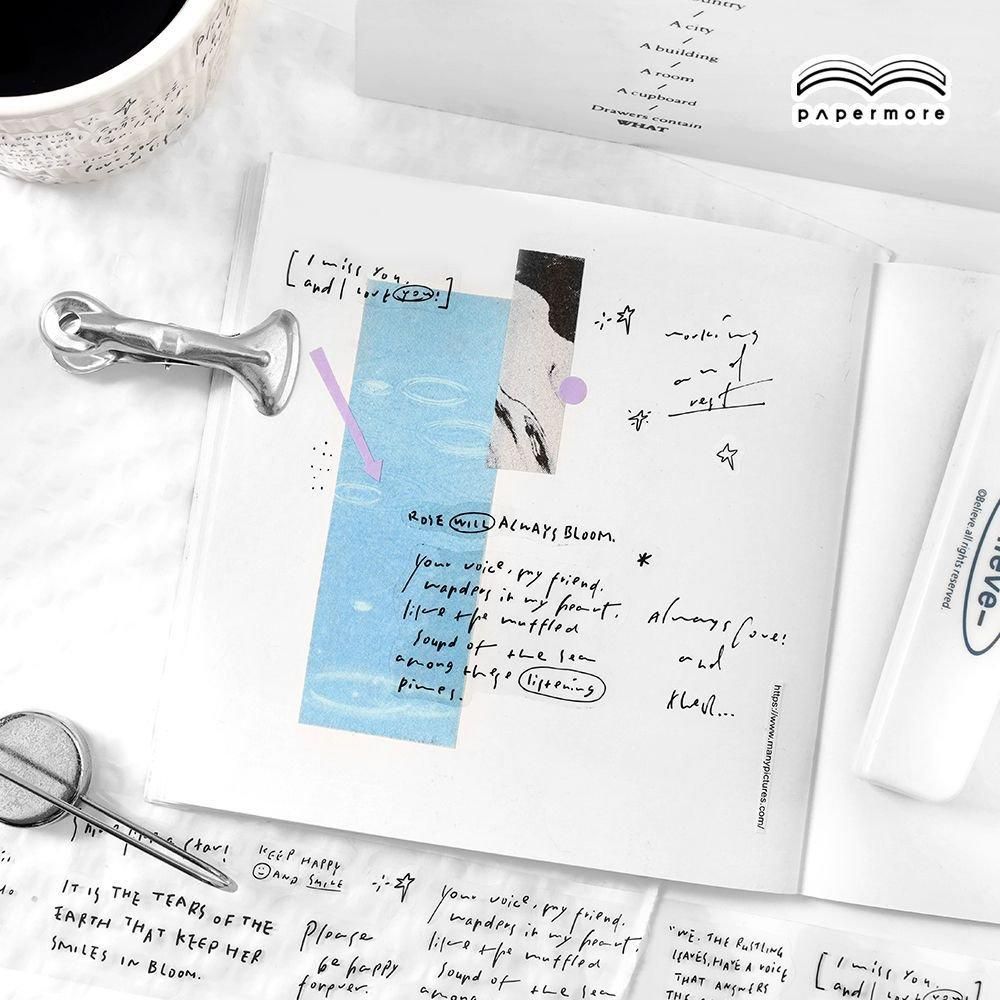 A city
/
A building
/
A room
/
A cupboard
/
Drawers contain
WHAT
pʌpermore
[I miss you.
and I love you!]
working
and
rest
ROSE WILL ALWAYS BLOOM.
your voice, my friend.
wanders in my heart.
like the muffled
sound of the sea
among these listening
pines.
*
Always love!
and
then...
https://www.manypictures.com/
©Believe.all rights reserved.
ieve-
a star!
KEEP HAPPY
AND SMILE
IT IS THE TEARS OF THE
EARTH THAT KEEP HER
SMILES IN BLOOM.
Please
be happy
forever.
your voice, my friend.
wanders in my heart.
like the muffled
sound of the sea
among
"WE, THE RUSTLING
LEAVES, HAVE A VOICE
THAT ANSWERS
THE
[I miss you.
and I love you!]